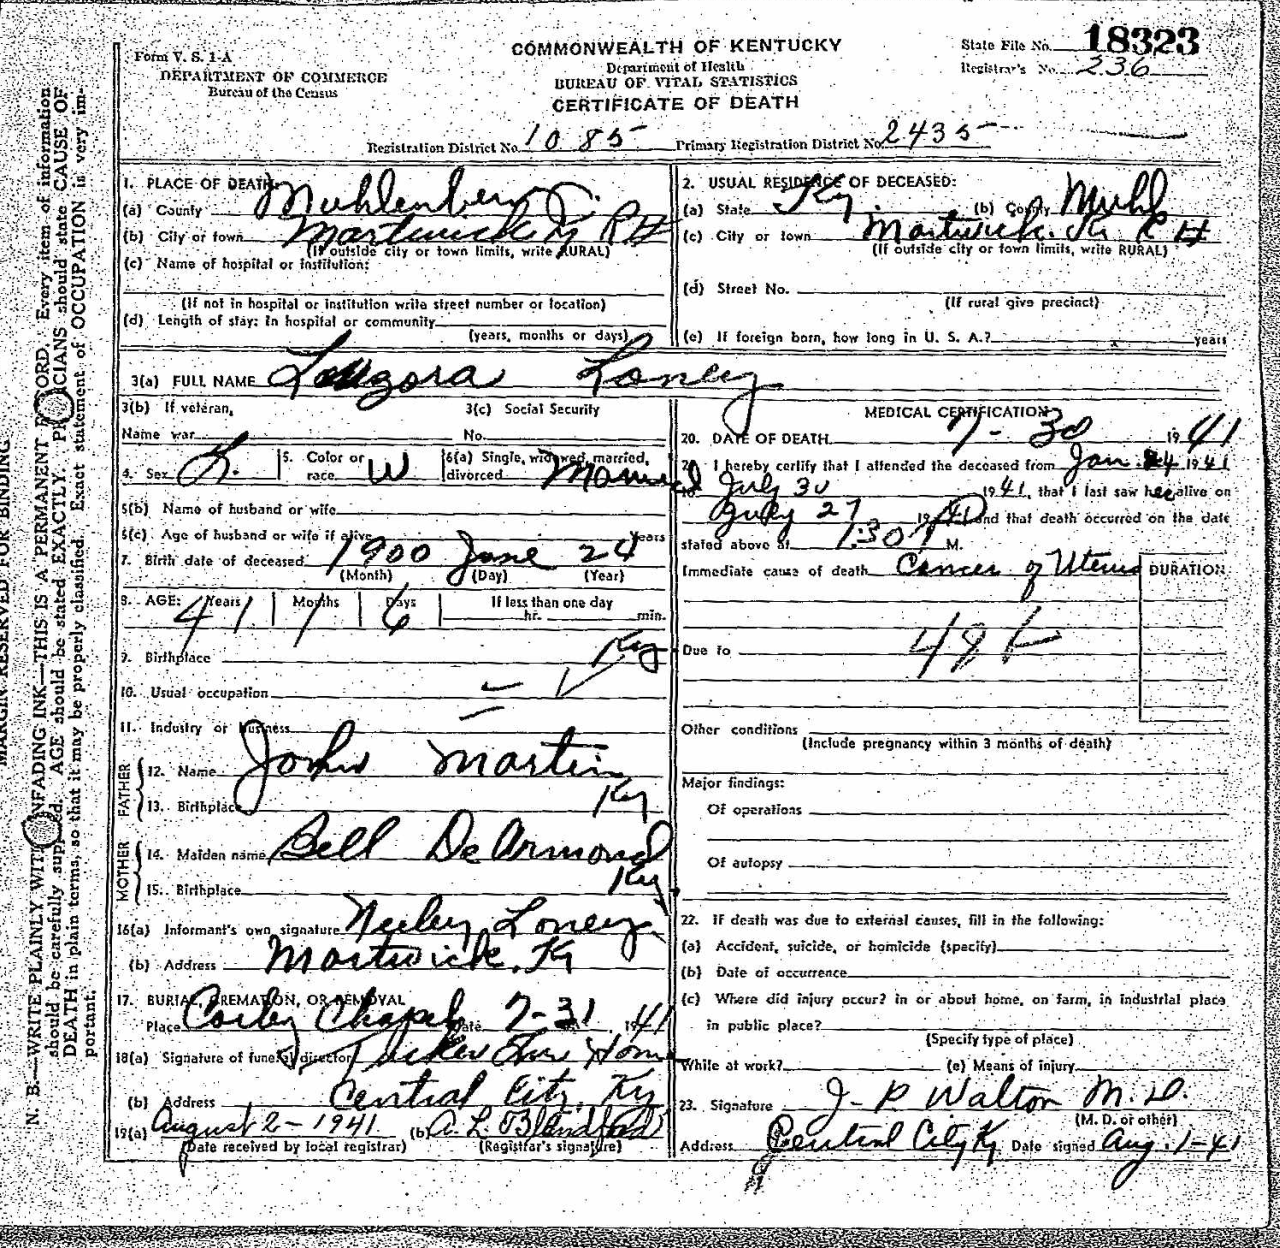 Form V. S. 1-A
DEPARTMENT OF COMMERCE
Bureau of the Census
COMMONWEALTH OF KENTUCKY
Department of Health
BUREAU OF VITAL STATISTICS
CERTIFICATE OF DEATH
State File No. 18323
Registrar's No. 236
Registration District No. 1085 Primary Registration District No. 2435
1. PLACE OF DEATH:
(a) County Muhlenberg
(b) City or town Martwick Ky R #
(If outside city or town limits, write RURAL)
(c) Name of hospital or institution:
(If not in hospital or institution write street number or location)
(d) Length of stay: In hospital or community
(years, months or days)
2. USUAL RESIDENCE OF DECEASED:
(a) State Ky. (b) County Muhl
(c) City or town Martwick Ky R #
(If outside city or town limits, write RURAL)
(d) Street No.
(If rural give precinct)
(e) If foreign born, how long in U. S. A.? years
3(a) FULL NAME Louzora Loney
3(b) If veteran, 3(c) Social Security
Name war No.
4. Sex F. 5. Color or race W 6(a) Single, widowed, married, divorced Married
6(b) Name of husband or wife
6(c) Age of husband or wife if alive years
7. Birth date of deceased 1900 June 24
(Month) (Day) (Year)
8. AGE: Years Months Days If less than one day
41 1 6 hr. min.
9. Birthplace Ky
10. Usual occupation
11. Industry or business
FATHER
12. Name John Martin
13. Birthplace Ky
MOTHER
14. Maiden name Bell DeArmond
15. Birthplace Ky.
16(a) Informant's own signature Neeley Loney
(b) Address Martwick, Ky
17. BURIAL, CREMATION, OR REMOVAL
Place Cosby Chapel Date 7-31, 1941
18(a) Signature of funeral director Tucker Fun Home
(b) Address Central City, Ky
19(a) August 2-1941 (b) A. L. Blandford
(Date received by local registrar) (Registrar's signature)
MEDICAL CERTIFICATION
20. DATE OF DEATH 7-30 1941
21. I hereby certify that I attended the deceased from Jan. 24 1941
to July 30 1941, that I last saw her alive on
July 27 1941 and that death occurred on the date
stated above at 1:30 M.
Immediate cause of death Cancer of Uterus DURATION
Due to 48
Other conditions
(Include pregnancy within 3 months of death)
Major findings:
Of operations
Of autopsy
22. If death was due to external causes, fill in the following:
(a) Accident, suicide, or homicide (specify)
(b) Date of occurrence
(c) Where did injury occur? in or about home, on farm, in industrial place
in public place?
(Specify type of place)
While at work? (e) Means of injury
23. Signature J. P. Walton M. D.
(M. D. or other)
Address Central City Ky Date signed Aug. 1-41
MARGIN RESERVED FOR BINDING
N. B.—WRITE PLAINLY WITH UNFADING INK—THIS IS A PERMANENT RECORD. Every item of information
should be carefully supplied. AGE should be stated EXACTLY. PHYSICIANS should state CAUSE OF
DEATH in plain terms, so that it may be properly classified. Exact statement of OCCUPATION is very im-
portant.